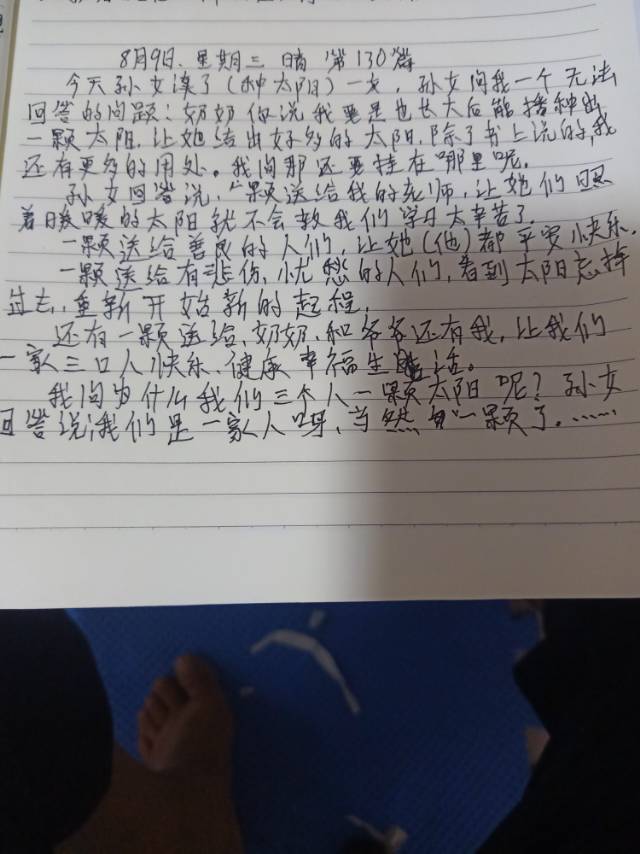 8月9日. 星期三 晴 第130篇
今天孙女读了(种太阳)一文, 孙女问我一个无法
回答的问题: 奶奶你说我要是也长大后能播种出
一颗太阳. 让她结出好多的太阳, 除了书上说的, 我
还有更多的用处。我问那还要挂在哪里呢.
孙女回答说, "一颗送给我的老师, 让她们因照
着日暖暖的太阳就不会教我们学习太辛苦了.
一颗送给善良的人们, 让她(他)都平安快乐.
一颗送给有悲伤, 忧愁的人们, 看到太阳忘掉
过去, 重新开始新的起程,
还有一颗送给, 奶奶, 和爷爷还有我, 让我们
一家三口人快乐, 健康幸福生活。
我问为什么我们三个人一颗太阳呢? 孙女
回答说; 我们是一家人吗, 当然一颗了. ……